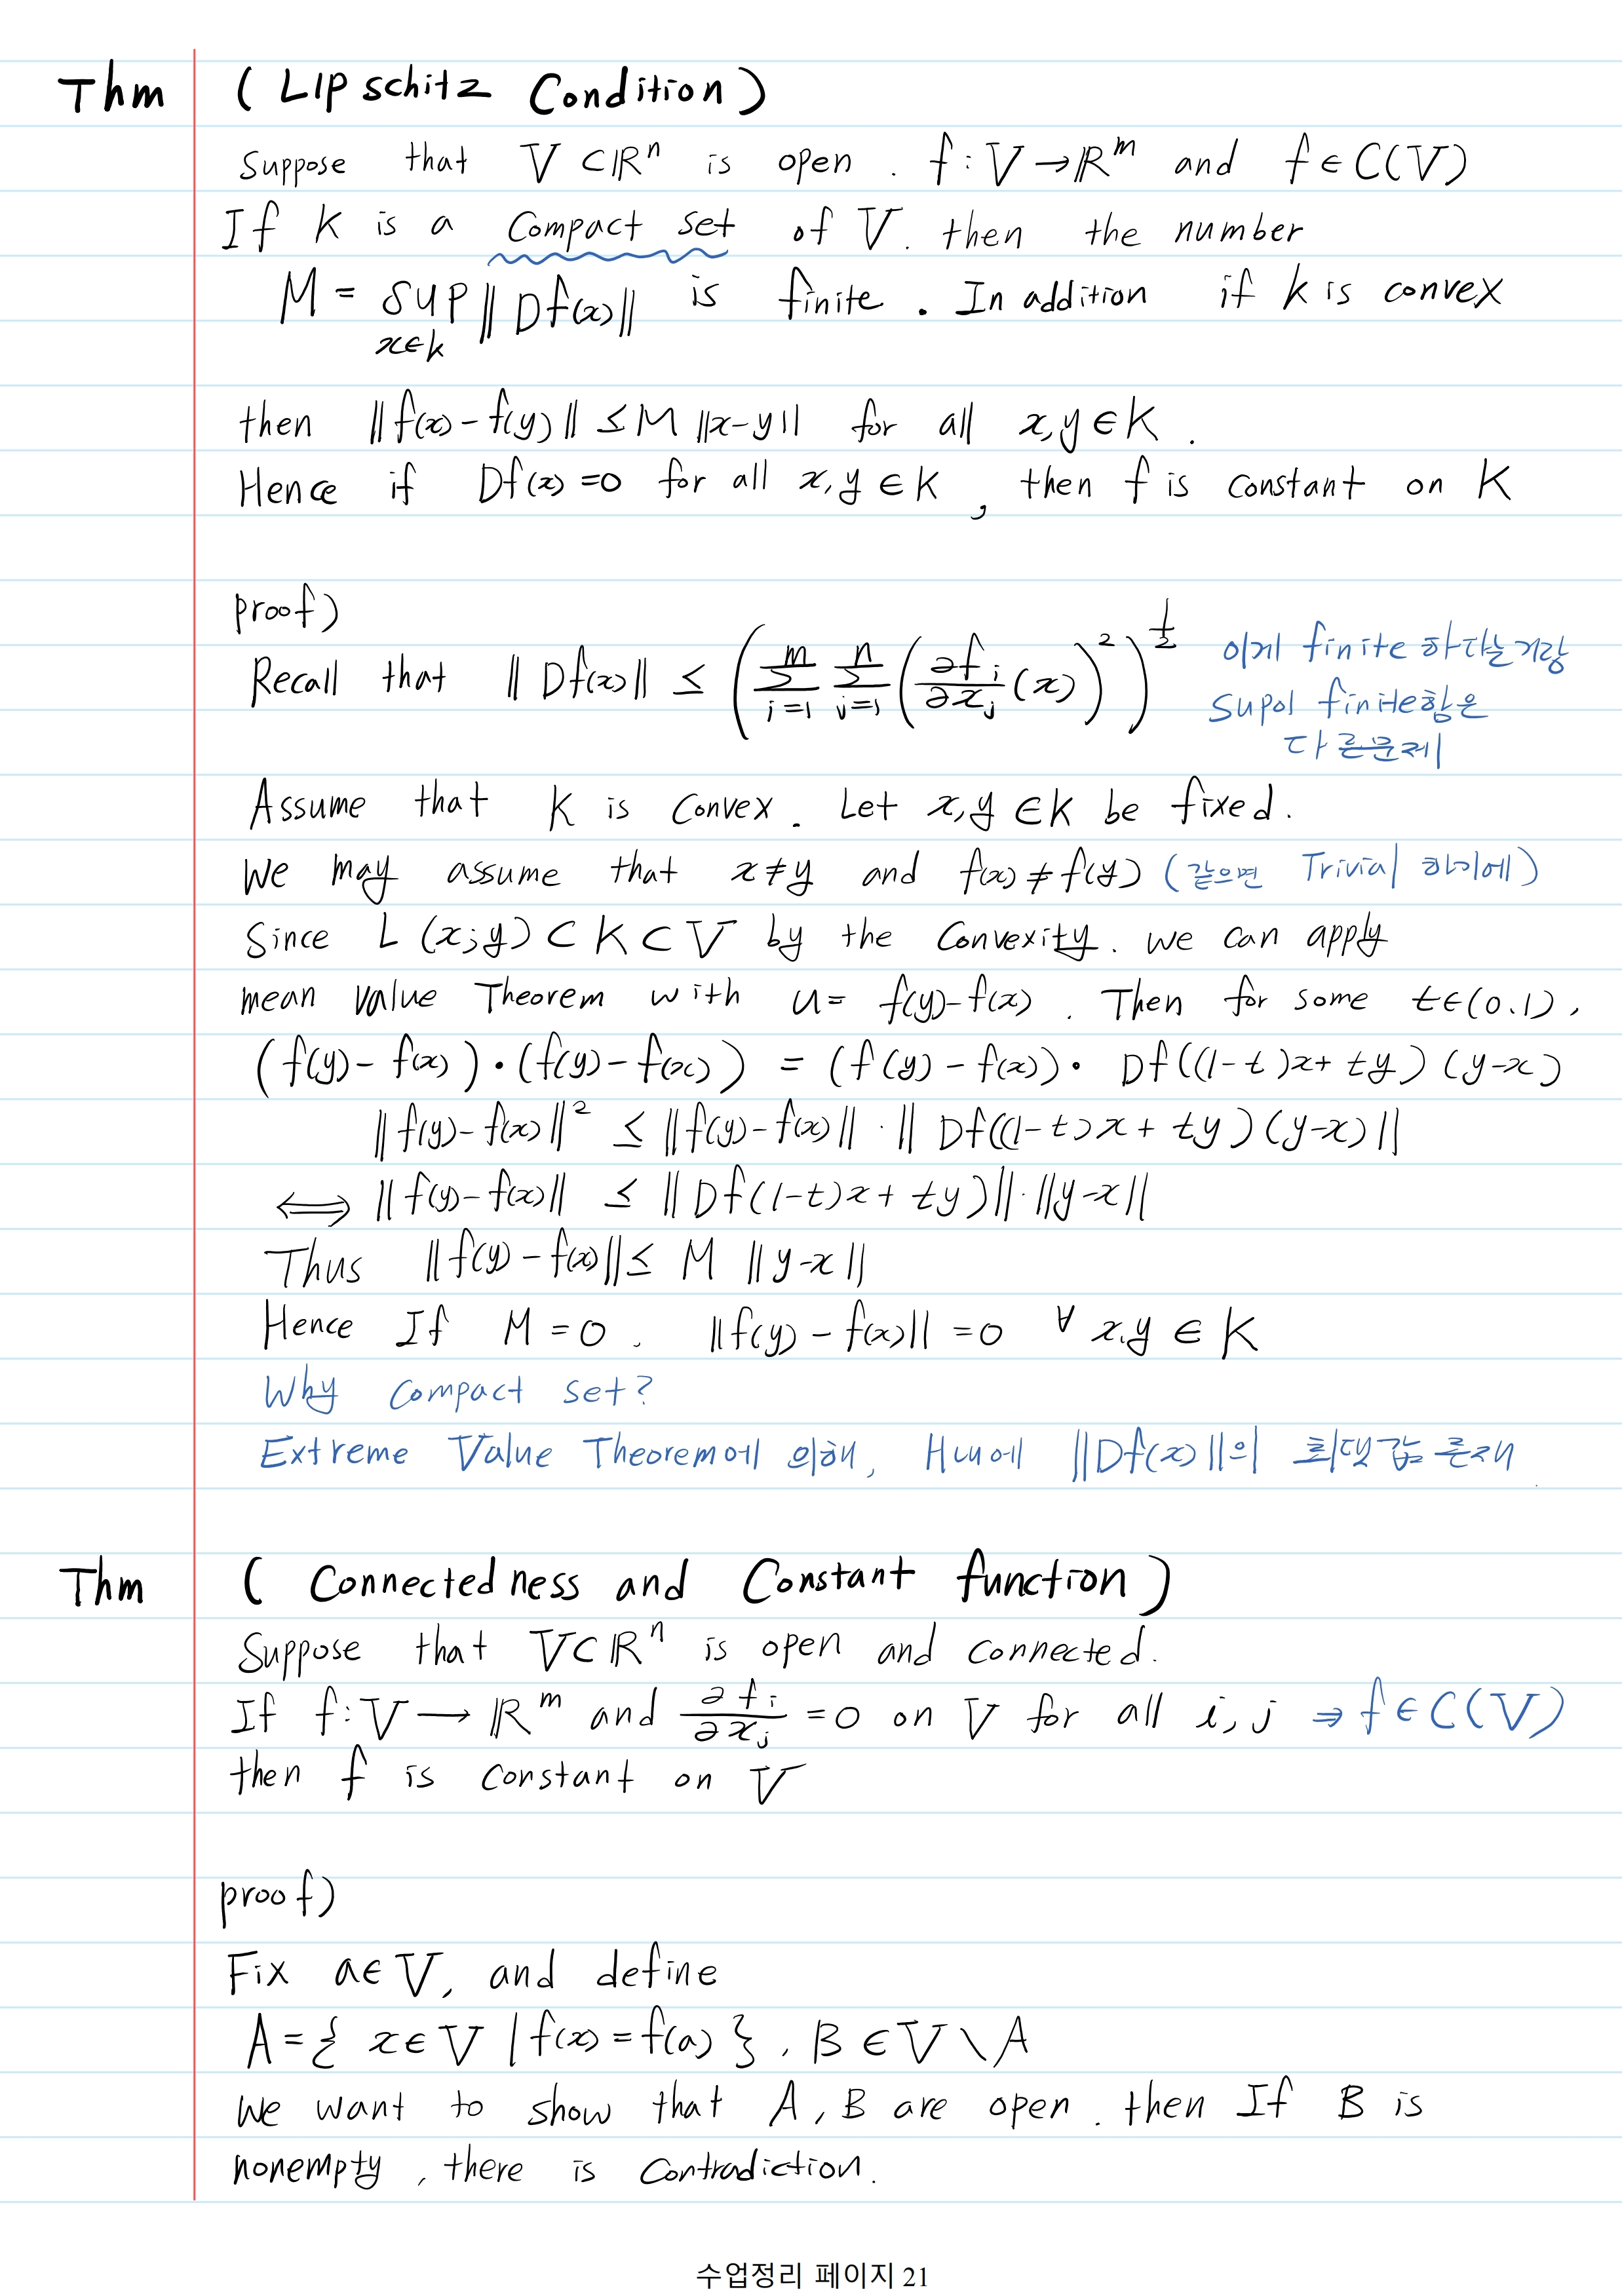 Thm (Lipschitz Condition)
Suppose that V ⊂ ℝⁿ is open. f : V → ℝᵐ and f ∈ C(V)
If K is a Compact set of V. then the number
M = sup_{x∈K} ‖Df(x)‖ is finite. In addition if K is convex
then ‖f(x) - f(y)‖ ≤ M ‖x-y‖ for all x,y ∈ K.
Hence if Df(x) = 0 for all x,y ∈ K, then f is constant on K
proof)
Recall that ‖Df(x)‖ ≤ (∑_{i=1}^{m} ∑_{j=1}^{n} (∂f_i/∂x_j (x))²)^{1/2} 이게 finite 하다는거랑
sup이 finite함은
다른문제
Assume that K is Convex. Let x,y ∈ K be fixed.
We may assume that x ≠ y and f(x) ≠ f(y) (같으면 Trivial 하기에)
Since L(x;y) ⊂ K ⊂ V by the Convexity. we can apply
mean value Theorem with u = f(y) - f(x). Then for some t ∈ (0.1),
(f(y) - f(x)) · (f(y) - f(x)) = (f(y) - f(x)) · Df((1-t)x + ty)(y-x)
‖f(y) - f(x)‖² ≤ ‖f(y) - f(x)‖ · ‖Df((1-t)x + ty)(y-x)‖
⟺ ‖f(y) - f(x)‖ ≤ ‖Df(1-t)x + ty)‖·‖y-x‖
Thus ‖f(y) - f(x)‖ ≤ M ‖y-x‖
Hence If M = 0. ‖f(y) - f(x)‖ = 0 ∀ x.y ∈ K
Why Compact set?
Extreme Value Theorem에 의해, H내에 ‖Df(x)‖의 최댓값 존재
Thm (Connectedness and Constant function)
Suppose that V ⊂ ℝⁿ is open and connected.
If f : V → ℝᵐ and ∂f_i/∂x_j = 0 on V for all i, j ⇒ f ∈ C(V)
then f is constant on V
proof)
Fix a ∈ V, and define
A = { x ∈ V | f(x) = f(a) }, B ∈ V \ A
We want to show that A, B are open. then If B is
nonempty, there is Contradiction.
수업정리 페이지 21